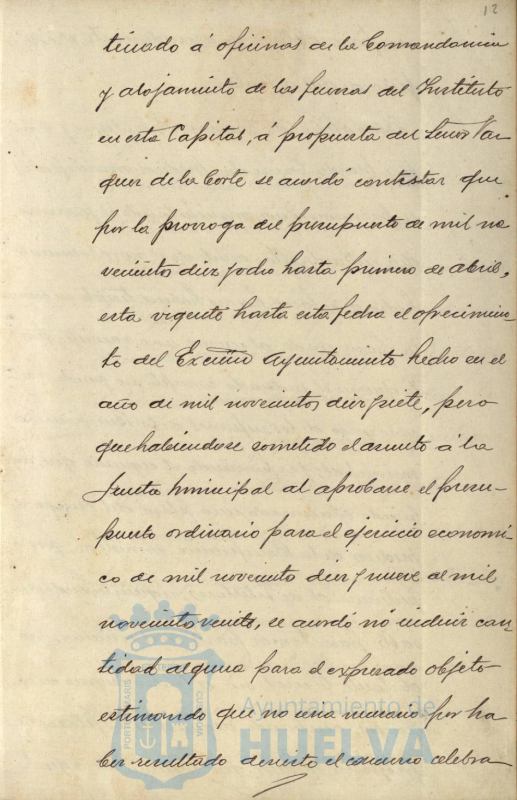 12
tinado á oficinas de la Comandancia
y alojamiento de las fuerzas del Instituto
en esta Capital, á propuesta del Señor Var
quez de la Corte se acordó contestar que
por la prorroga del presupuesto de mil no
vecientos diez y ocho hasta primero de abril,
esta vigente hasta esta fecha el ofrecimien
to del Excmo Ayuntamiento hecho en el
año de mil novecientos diez y siete, pero
que habiendose sometido el asunto á la
Junta municipal al aprobarse el presu-
puesto ordinario para el ejercicio economi
co de mil novecientos diez y nueve al mil
novecientos veinte, se acordó nó incluir can
tidad alguna para el expresado objeto
estimando que no era necesario por ha
ber resultado desierto el concurso celebra
Ayuntamiento de
HUELVA